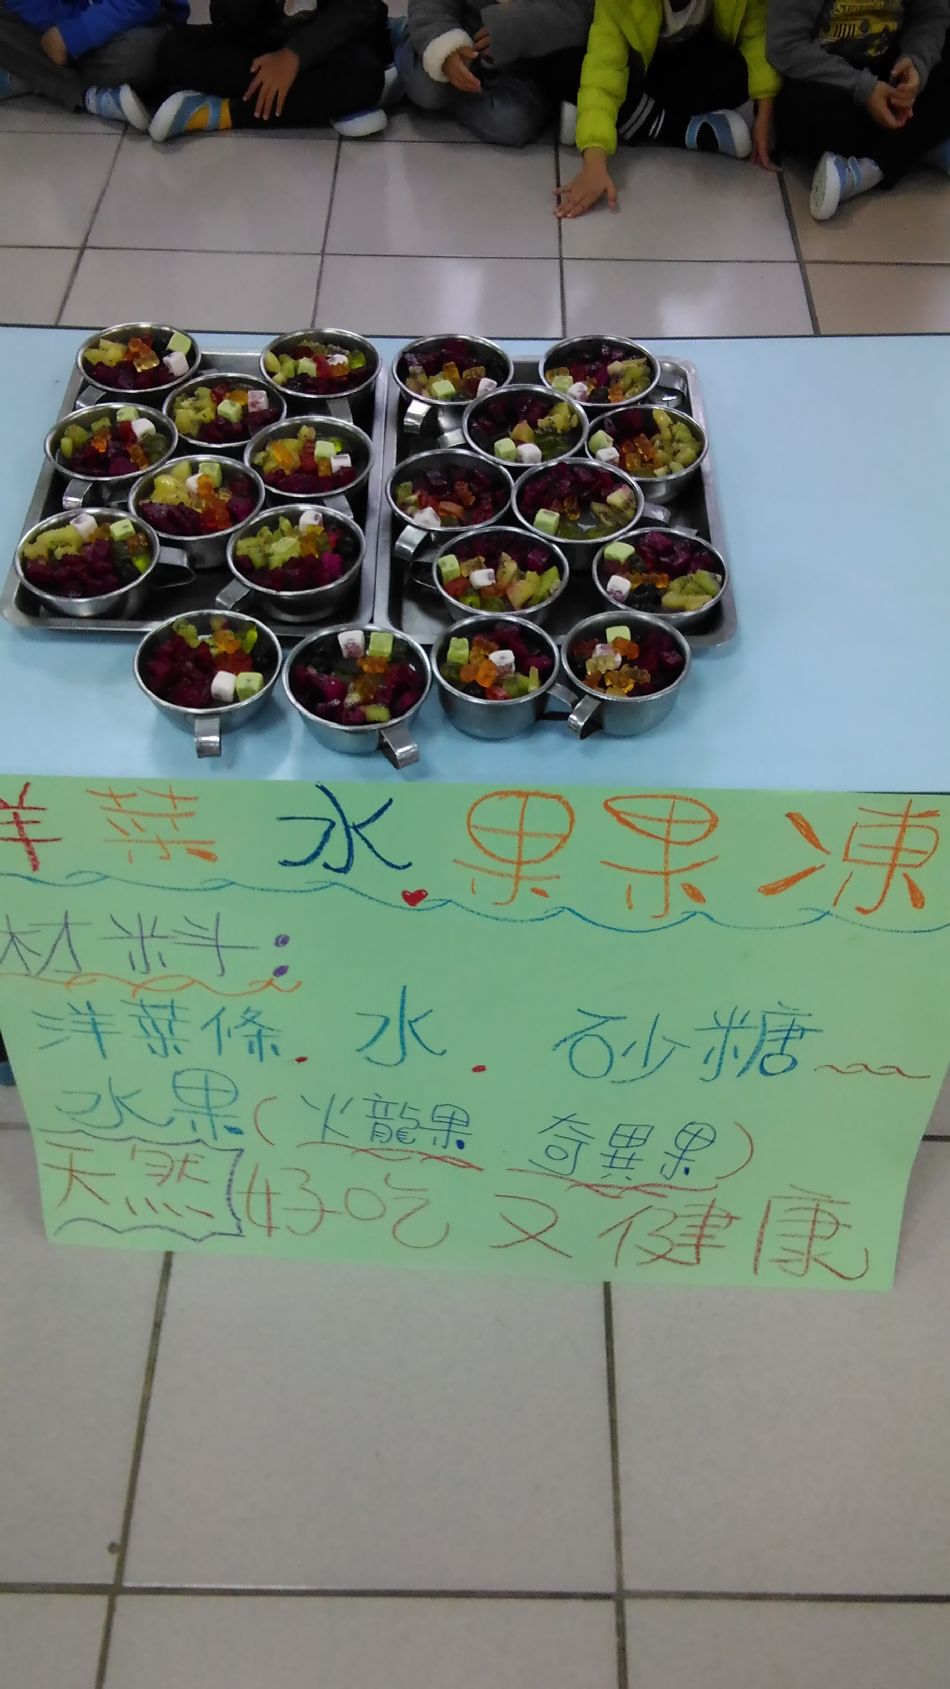 洋菜水果果凍
材料:
洋菜條.水.砂糖
水果(火龍果 奇異果)
天然好吃又健康